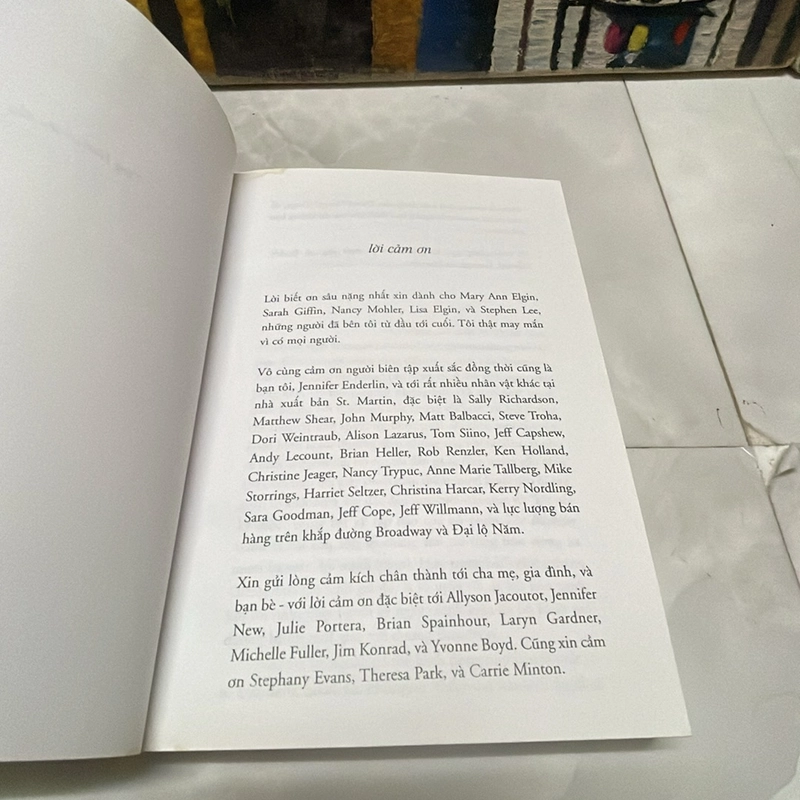 lời cảm ơn
Lời biết ơn sâu nặng nhất xin dành cho Mary Ann Elgin,
Sarah Giffin, Nancy Mohler, Lisa Elgin, và Stephen Lee,
những người đã bên tôi từ đầu tới cuối. Tôi thật may mắn
vì có mọi người.
Vô cùng cảm ơn người biên tập xuất sắc đồng thời cũng là
bạn tôi, Jennifer Enderlin, và tới rất nhiều nhân vật khác tại
nhà xuất bản St. Martin, đặc biệt là Sally Richardson,
Matthew Shear, John Murphy, Matt Balbacci, Steve Troha,
Dori Weintraub, Alison Lazarus, Tom Siino, Jeff Capshew,
Andy Lecount, Brian Heller, Rob Renzler, Ken Holland,
Christine Jeager, Nancy Trypuc, Anne Marie Tallberg, Mike
Storrings, Harriet Seltzer, Christina Harcar, Kerry Nordling,
Sara Goodman, Jeff Cope, Jeff Willmann, và lực lượng bán
hàng trên khắp đường Broadway và Đại lộ Năm.
Xin gửi lòng cảm kích chân thành tới cha mẹ, gia đình, và
bạn bè - với lời cảm ơn đặc biệt tới Allyson Jacoutot, Jennifer
New, Julie Portera, Brian Spainhour, Laryn Gardner,
Michelle Fuller, Jim Konrad, và Yvonne Boyd. Cũng xin cảm
ơn Stephany Evans, Theresa Park, và Carrie Minton.